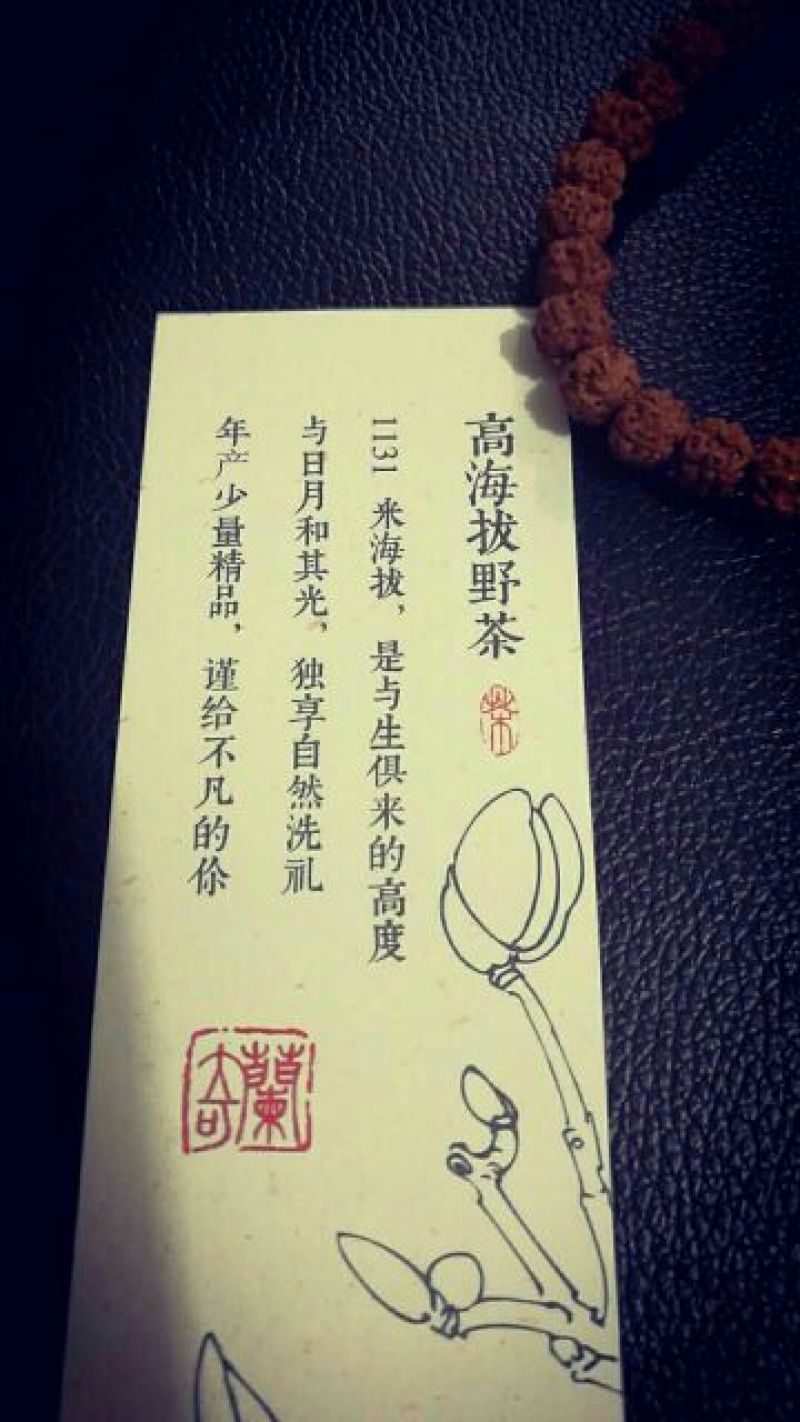 高海拔野茶
茶
1131 米海拔，是与生俱来的高度
与日月和其光，独享自然洗礼
年产少量精品，谨给不凡的你
蘭奇